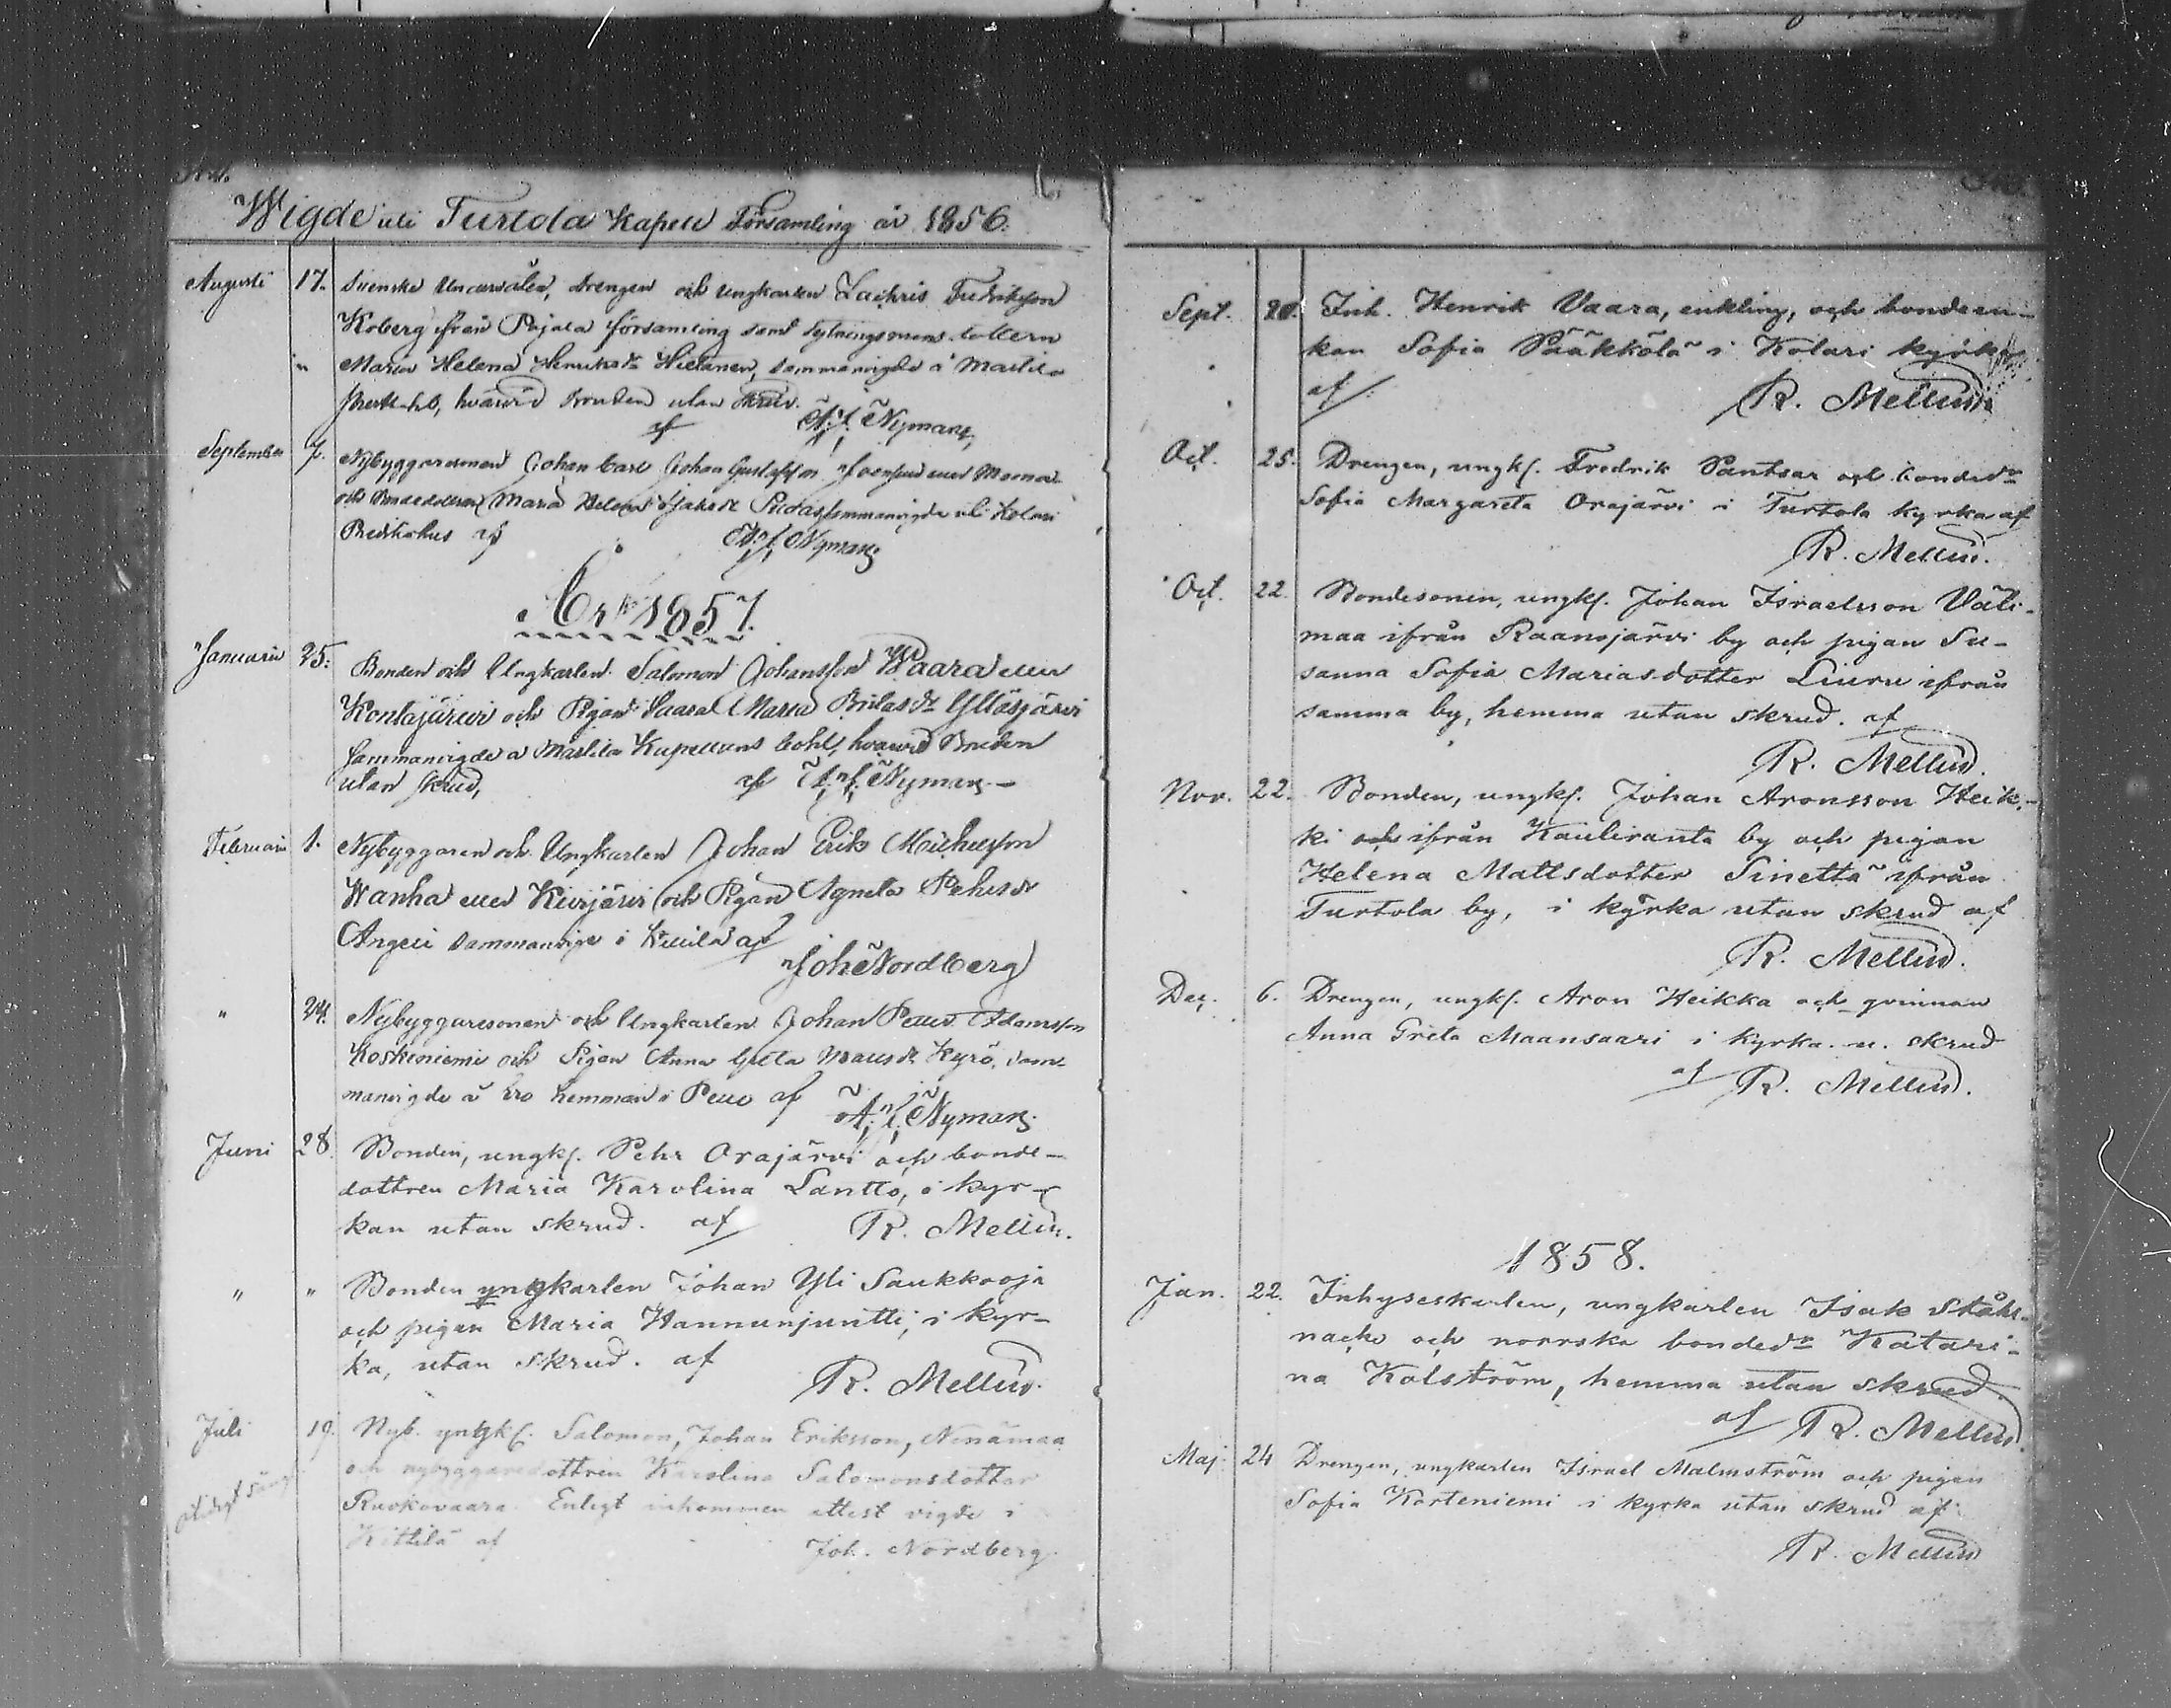 Wigde uti Turtola Kapell Församling år 1856.
Augusti 17. Svenske Undersåten, drengen och Ungkarlen Zachris Fredriksson
Koberg från Pajala församling samt Sytningsmans dottern
" Maria Helena Henriksdr Hietanen, sammanvigde å Martila
hvarvid bruden utan skrud.
af Nyman,
September 7. Nybyggaresonen Johan Carl Johan Gustafsson
och Bondedottern Maria Helena Pudas sammanvigde uti Kolari
Predikohus af Nyman
År 1857.
Januarii 25. Bonden och Ungkarlen Salomon Johansson Waara eller
Kontajärvi och Pigan Maria Ylläsjärvi
Sammanvigde å Martila Kapellans bohl, hvarvid Bruden
utan skrud, af Nyman
Februari 1. Nybyggaren och Ungkarlen Johan Erik Michelsson
Wanha eller Kuivjärvi och Pigan Agneta Pehrsdr
Angeli sammanvigde i Kittilä af
Joh Nordberg
" 24. Nybyggaresonen och Ungkarlen Johan Petter Adamsson
Koskeniemi och Pigan Anna Greta Kyrö, sam-
manvigde å Ero hemman i Pello af Nyman
Juni 28. Bonden, ungk. Pehr Orajärvi och bonde-
dottren Maria Karolina Lantto, i kyr-
kan utan skrud. af R. Mellin.
" " Bonden yngkarlen Johan Yli Saukkooja
och pigan Maria Hannunjuntti, i kyr-
ka, utan skrud. af
R. Mellin.
Juli 19. Nyb. yngk. Salomon, Johan Eriksson, Nenämaa
och nybyggaredottren Karolina Salomonsdotter
Ruokovaara. Enligt inkommen attest vigde i
Kittilä af Joh. Nordberg.
Sept. 20. Inh. Henrik Vaara, enkling, och bondeen-
kan Sofia Pääkkölä i Kolari kyrka
af R. Mellin
Oct. 25. Drengen, ungk. Fredrik Pantsar och bondedr
Sofia Margareta Orajärvi i Turtola kyrka af
R. Mellin.
Oct. 22. Bondesonen, ungk. Johan Israelsson Väli-
maa ifrån Raanojärvi by och pigan Su-
sanna Sofia Mariasdotter Liuru ifrån
samma by, hemma utan skrud. af
R. Mellin.
Nov. 22. Bonden, ungk. Johan Aronsson Heik-
ki och ifrån Kauliranta by och pigan
Helena Mattsdotter Sinettä ifrån
Turtola by, i kyrka utan skrud af
R. Mellin.
Dec. 6. Drengen, ungk. Aron Heikka och qvinnan
Anna Greta Maansaari i kyrka u. skrud
af R. Mellin.
1858.
Jan. 22. Inhyseskarlen, ungkarlen Isak Ståhl-
nacke och norrska bondedr Katari-
na Kolström, hemma utan skrud.
af R. Mellin.
Maj 24 Drengen, ungkarlen Israel Malmström och pigan
Sofia Karteniemi i kyrka utan skrud af
R. Mellin